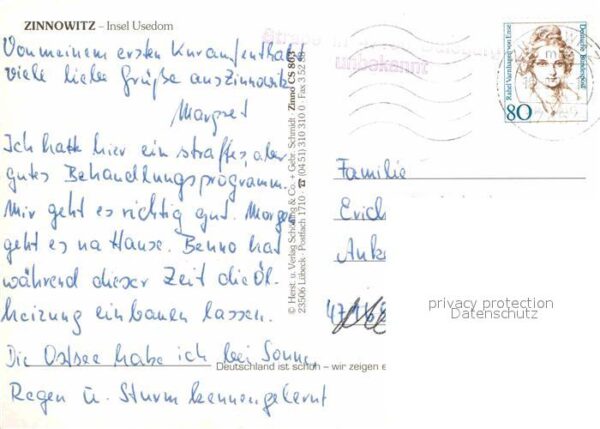 ZINNOWITZ – Insel Usedom
Von meinem ersten Kuraufenthalt
viele liebe Grüße aus Zinnowitz
Margret
Ich hatte hier ein straffes, aber
gutes Behandlungsprogramm.
Mir geht es richtig gut. Morgen
geht es na Hause. Benno hat
während dieser Zeit die Öl-
heizung einbauen lassen.
Die Ostsee habe ich bei Sonne,
Regen u. Sturm kennengelernt
© Herst. u. Verlag Schöning & Co. + Gebr. Schmidt · Zinno CS 863
23506 Lübeck · Postfach 1710 · ☎ (04 51) 310 310 0 · Fax 3 52 58
Deutschland ist schön – wir zeigen e
unbekannt
Rahel Varnhagen von Ense
Deutsche Bundespost
80
Familie
Erich
Anke
privacy protection
Datenschutz